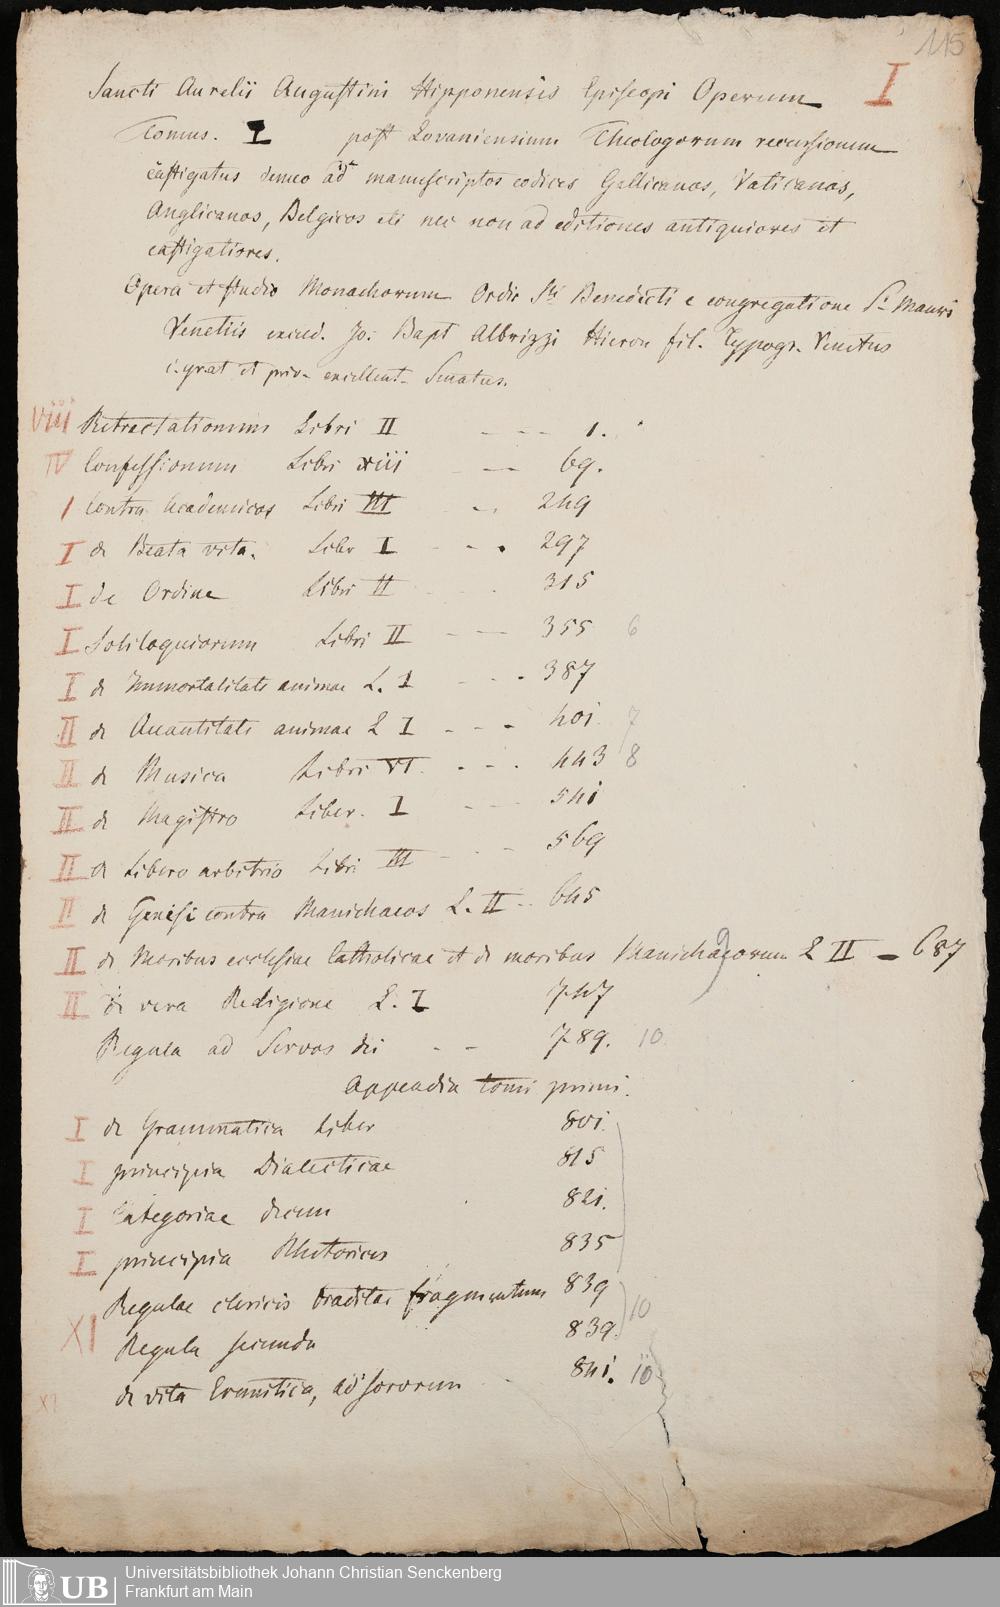 115
I
Sancti Aurelii Augustini Hipponensis Episcopi Operum
Tomus. I post Lovaniensium Theologorum recensionem
castigatus denuo ad manuscriptos codices Gallicanos, Vaticanos,
Anglicanos, Belgicos etc nec non ad editiones antiquiores et
castigatiores.
Opera et studio Monachorum Ordis Sti Benedicti e congregatione S. Mauri
Venetiis excud. Jo: Bapt Albrizzi Hieron fil. Typogr. Venetus
et priv. excellent. Senatus.
VIII Retractationum Libri II --- 1.
IV Confessionum Libri xiii -- 69.
I Contra Academicos Libri III -- 249
I de Beata vita. Liber I --- 297
I de Ordine Libri II -- 315
I Soliloquiorum Libri II -- 355 6
I de Immortalitate animae L. I --- 387
II de Quantitate animae L I --- 401 7
II de Musica Libri VI. --- 443 8
II de Magistro Liber. I -- 541
II de Libero arbitrio Libri III -- 569
II de Genesi contra Manichaeos L. II -- 645
II de Moribus ecclesiae Catholicae et de moribus Manichaeorum L II - 687
9
II de vera Religione L. I 747
Regula ad Servos dei -- 789. 10
Appendix tomi primi.
I de Grammatica Liber 801.
I principia Dialecticae 815
I Categoriae decem 821.
I principia Rhetorices 835
Regulae clericis traditae fragmentum 839
XI Regula secunda 839. 10
XI de vita Eremitica, ad sororem - 841. 10
UB Universitätsbibliothek Johann Christian Senckenberg
Frankfurt am Main